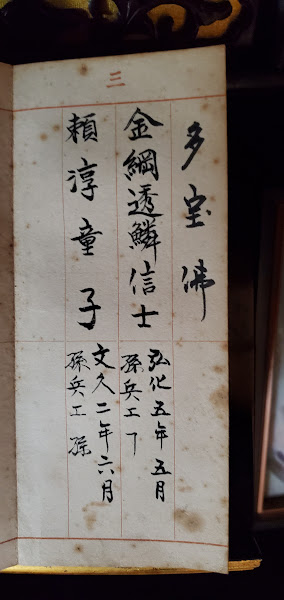 三
多宝佛
金綱透鱗信士
弘化五年五月
孫兵エ
頼淳童子
文久二年六月
孫兵エ 孫